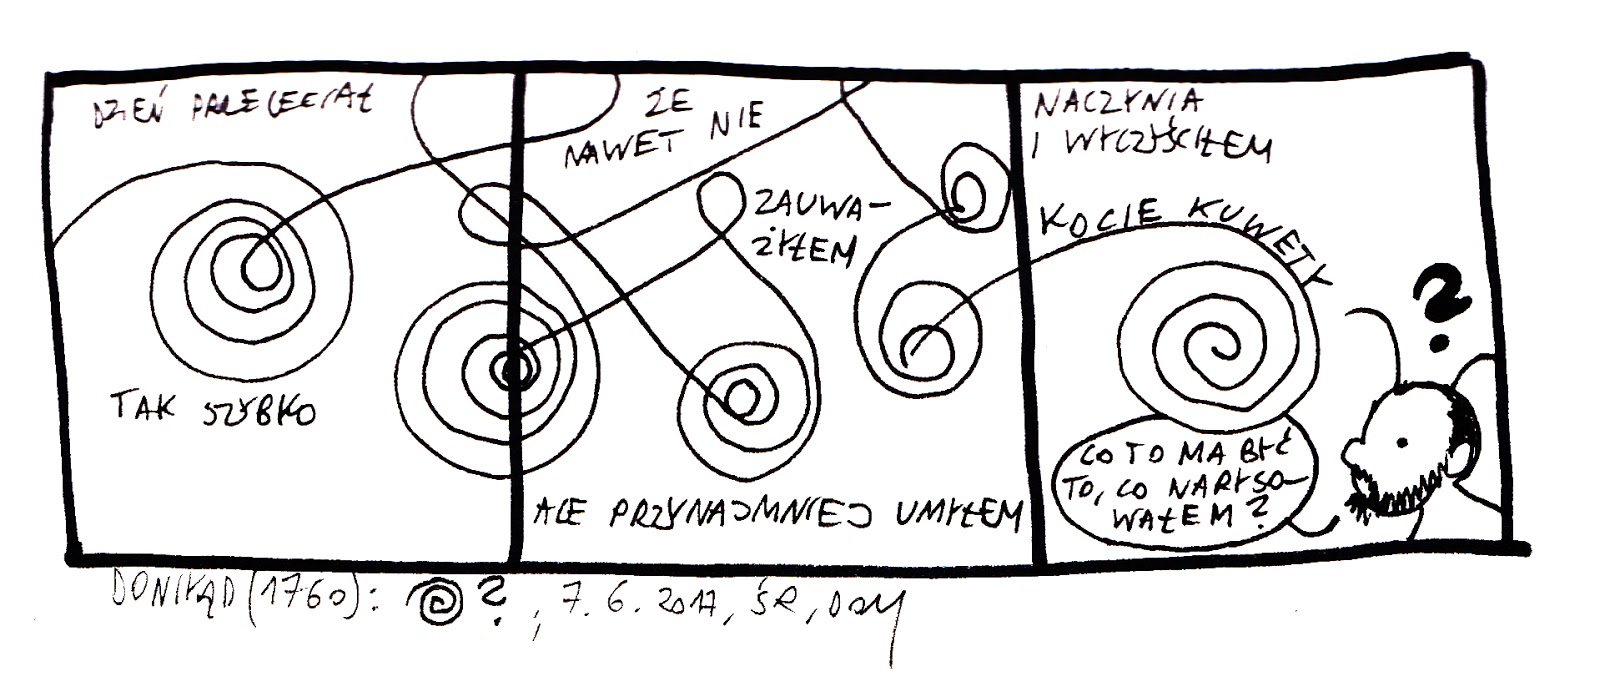 DZIEŃ PRZELECIAŁ
TAK SZYBKO
ŻE
NAWET NIE
ZAUWA-
ŻYŁEM
ALE PRZYNAJMNIEJ UMYŁEM
NACZYNIA
I WYCZYŚCIŁEM
KOCIE KUWETY
?
CO TO MA BYĆ
TO, CO NARYSO-
WAŁEM?
DONIKĄD (1760): ?, 7.6.2017, ŚR, DOM